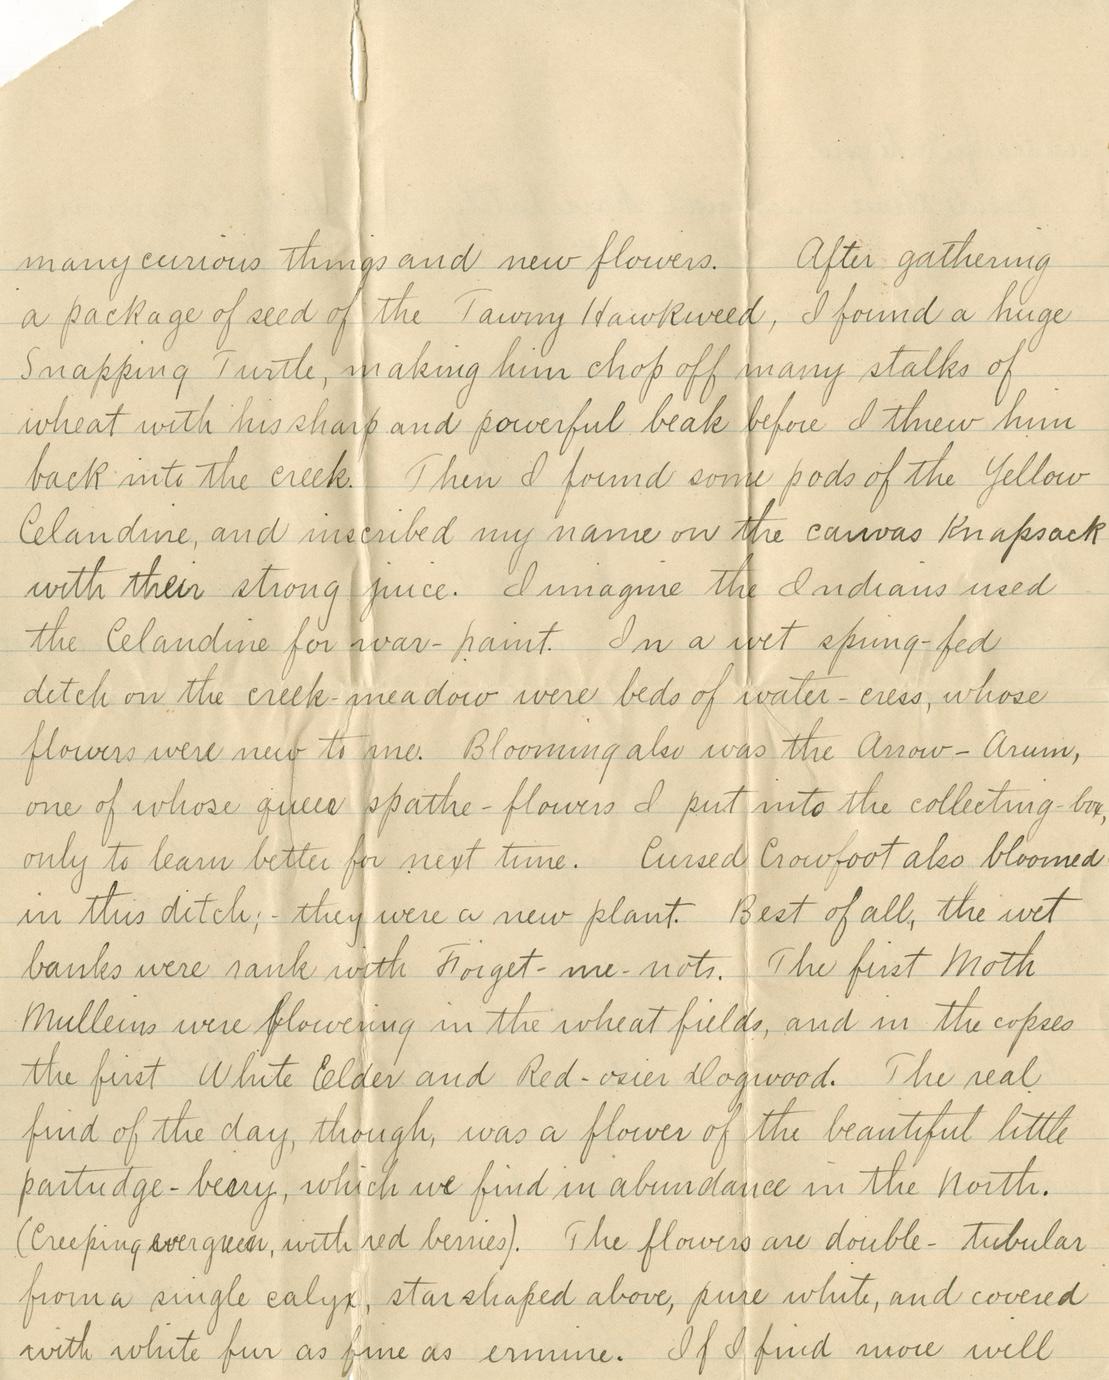 many curious things and new flowers. After gathering
a package of seed of the Tawny Hawkweed, I found a huge
Snapping Turtle, making him chop off many stalks of
wheat with his sharp and powerful beak before I threw him
back into the creek. Then I found some pods of the Yellow
Celandine, and inscribed my name on the canvas Knapsack
with their strong juice. I imagine the Indians used
the Celandine for war-paint. In a wet spring-fed
ditch on the creek-meadow were beds of water-cress, whose
flowers were new to me. Blooming also was the Arrow-Arum,
one of whose queer spathe-flowers I put into the collecting-box,
only to learn better for next time. Cursed Crowfoot also bloomed
in this ditch;- they were a new plant. Best of all, the wet
banks were rank with Forget-me-nots. The first Moth
Mulleins were flowering in the wheat fields, and in the copses
the first White Elder and Red-osier Dogwood. The real
find of the day, though, was a flower of the beautiful little
partridge-berry, which we find in abundance in the North.
(Creeping evergreen, with red berries). The flowers are double-tubular
from a single calyx, star shaped above, pure white, and covered
with white fur as fine as ermine. If I find more will